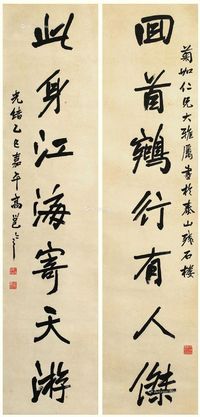 菊仁兄大雅属書於泰山殘石樓
回首鵷行有人傑
此身江海寄天游
光緒乙巳嘉平高邕之